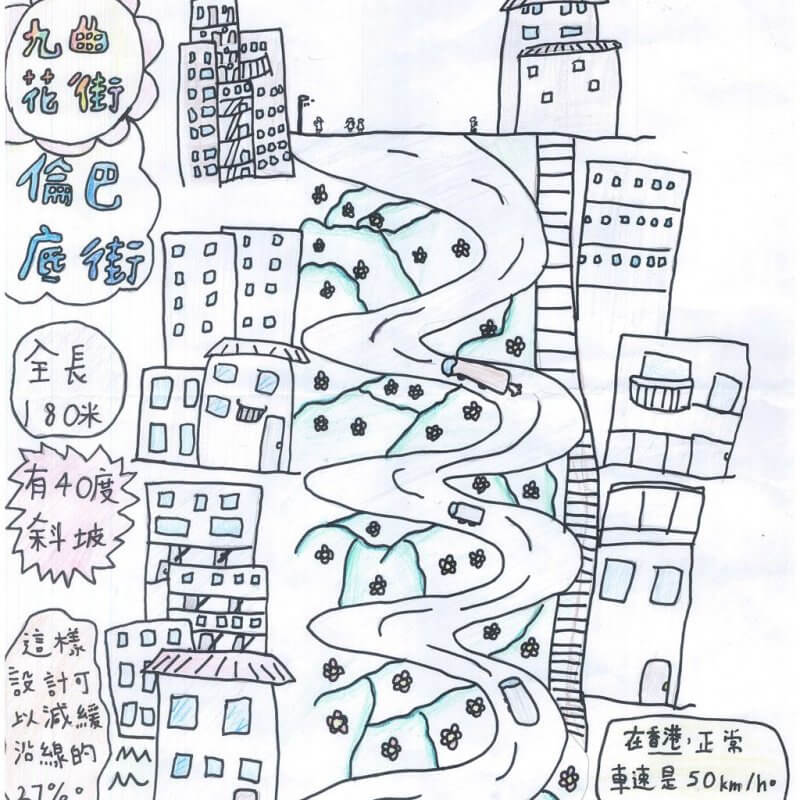 九曲
花街
倫巴
底街
全長
180米
有40度
斜坡
這樣
設計可
以減緩
沿線的
27%。
在香港，正常
車速是50km/h。